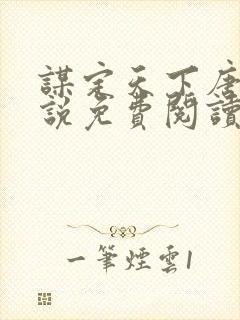 謀定天下唐
說免費閱讀
一筆煙雲1